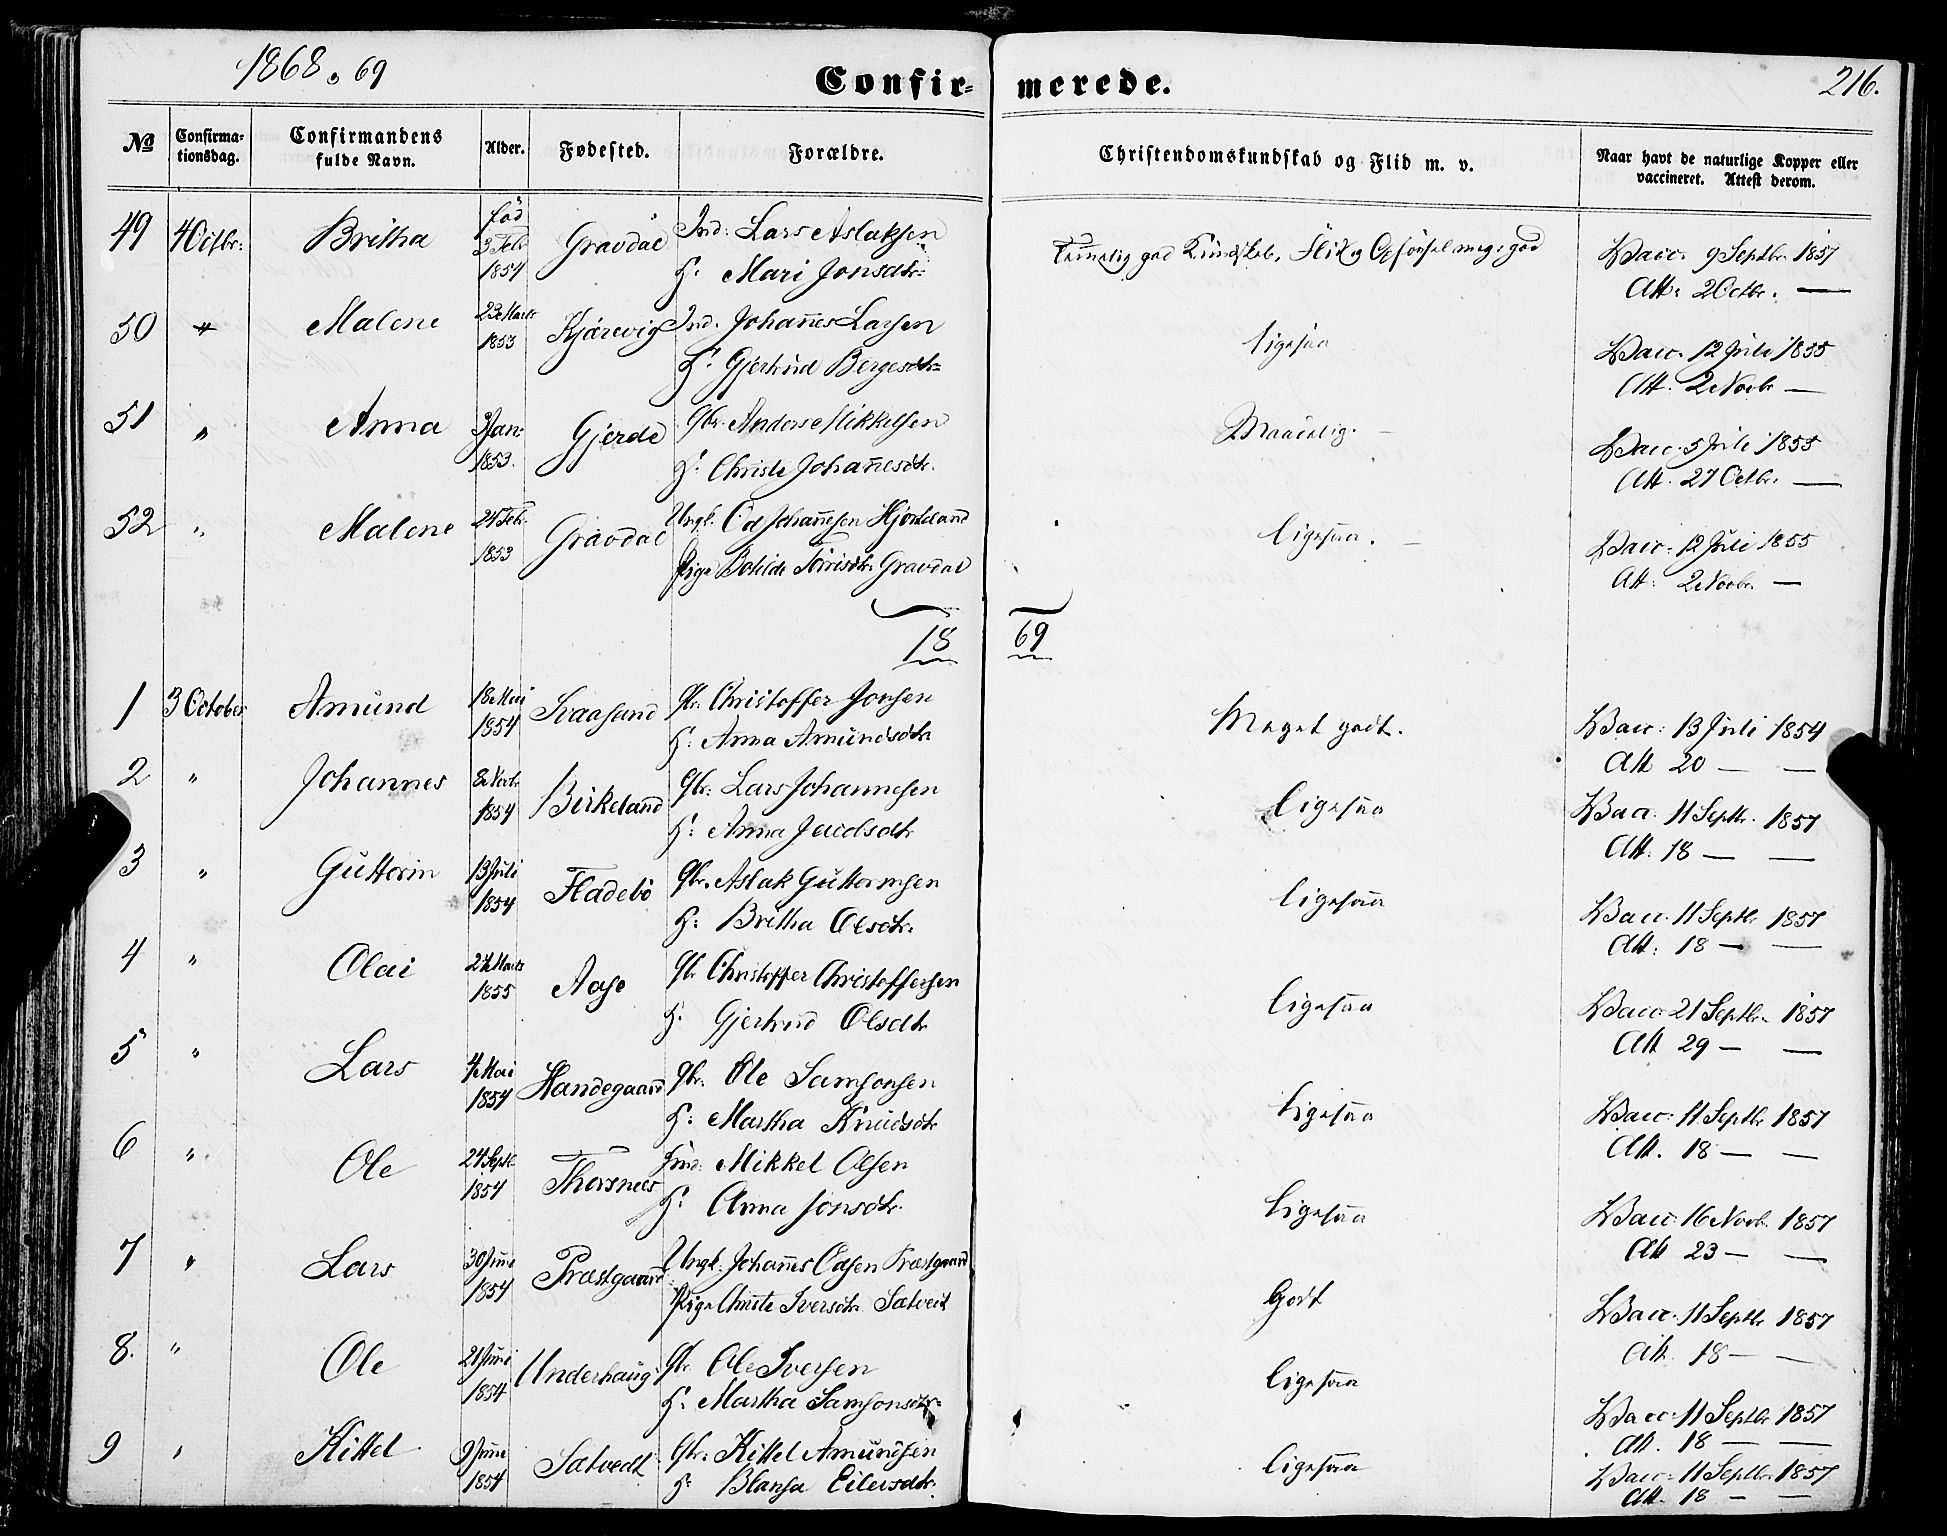 1868 o 69
Confir-merede.
216.
No Confirmationsdag. Confirmandens fulde Navn. Alder. Fødested. Forældre. Christendomskundskab og Flid m. v. Naar havt de naturlige Kopper eller vaccineret. Attest derom.
49 4 Octbr: Britha fød 3 Febr 1854 Gravdal Ind: Lars Aslaksen
H: Mari Jonsdtr=
Temelig god Kundskab, Flid og Opførsel meg: god
Vacc. 9 Septbr. 1857
Att: 2 Octbr. —
50 " Malene 23 Marts 1853 Kjærevig Ind. Johañes Larsen
H: Gjertrud Bergesdtr=
ligesaa
Vacc. 12 Juli 1855
Att. 2 Novbr —
51 " Anna 3 Jan: 1853. Gjerde Gbr. Anders Mikkelsen
H: Christe Johañesdtr.
Maadelig.
Vacc. 5 Juli 1855
Att. 27 Octbr. —
52 " Malene 24 Febr. 1853 Gravdal Ungk. Od Johañesen Hjorteland
Pige Botilde Gravdal
ligesaa.
Vacc. 12 Juli 1855
Att: 2 Novbr. —
18 69
1 3 October Amund 18 Mai 1854 Svaasand Gbr. Christoffer Jonsen
H: Anna Amundsdtr
Meget godt.
Vacc: 13 Juli 1854
Att 20 — —
2 " Johannes 8 Novbr 1854 Birkeland Gbr: Lars Johannesen
H: Anna
ligesaa
Vacc. 11 Septbr. 1857
Att. 18 — —
3 " Guttorm 13 Juli 1854 Fladebö Gbr. Aslak Guttormsen
H: Britha Olsdtr.
ligesaa
Vacc. 11 Septbr 1857
Att: 18 — —
4 " Olai 24 Marts 1855 Aase Gbr Christoffer Christoffersen
H: Gjertrud Olsdtr
ligesaa
Vacc 21 Septbr. 1857
Att 29 — —
5 " Lars 4 Mai 1854 Handegaard Gbr. Ole Samsonsen
H: Martha Knudsdtr
ligesaa
Vacc: 11 Septbr 1857
Att. 18 — —
6 " Ole 24 Septb 1854 Thorsnæs Ind: Mikkel Olsen
H: Anna Jonsdtr.
ligesaa
Vacc. 16 Novb. 1857
Att 23 — —
7 " Lars 30 Juni 1854 Præstgaard Ungk: Johañes Odsen Præstgaard
Pige Christe Iversdtr. Sætveit
Godt
Vacc. 11 Septbr 1857
Att. 18 — —
8. " Ole 21 Juni 1854 Underhaug Gbr. Ole Iversen
H: Martha Samsonsdtr=
ligesaa
Vacc. 11 Septbr 1857
Att. 18 — —
9 " Kittel 9 Juni 1854 Sætvedt Gbr: Kittel Amundsen
H: Blansa Eilersdtr.
ligesaa
Vacc. 11 Septbr. 1857
Att. 18 — —